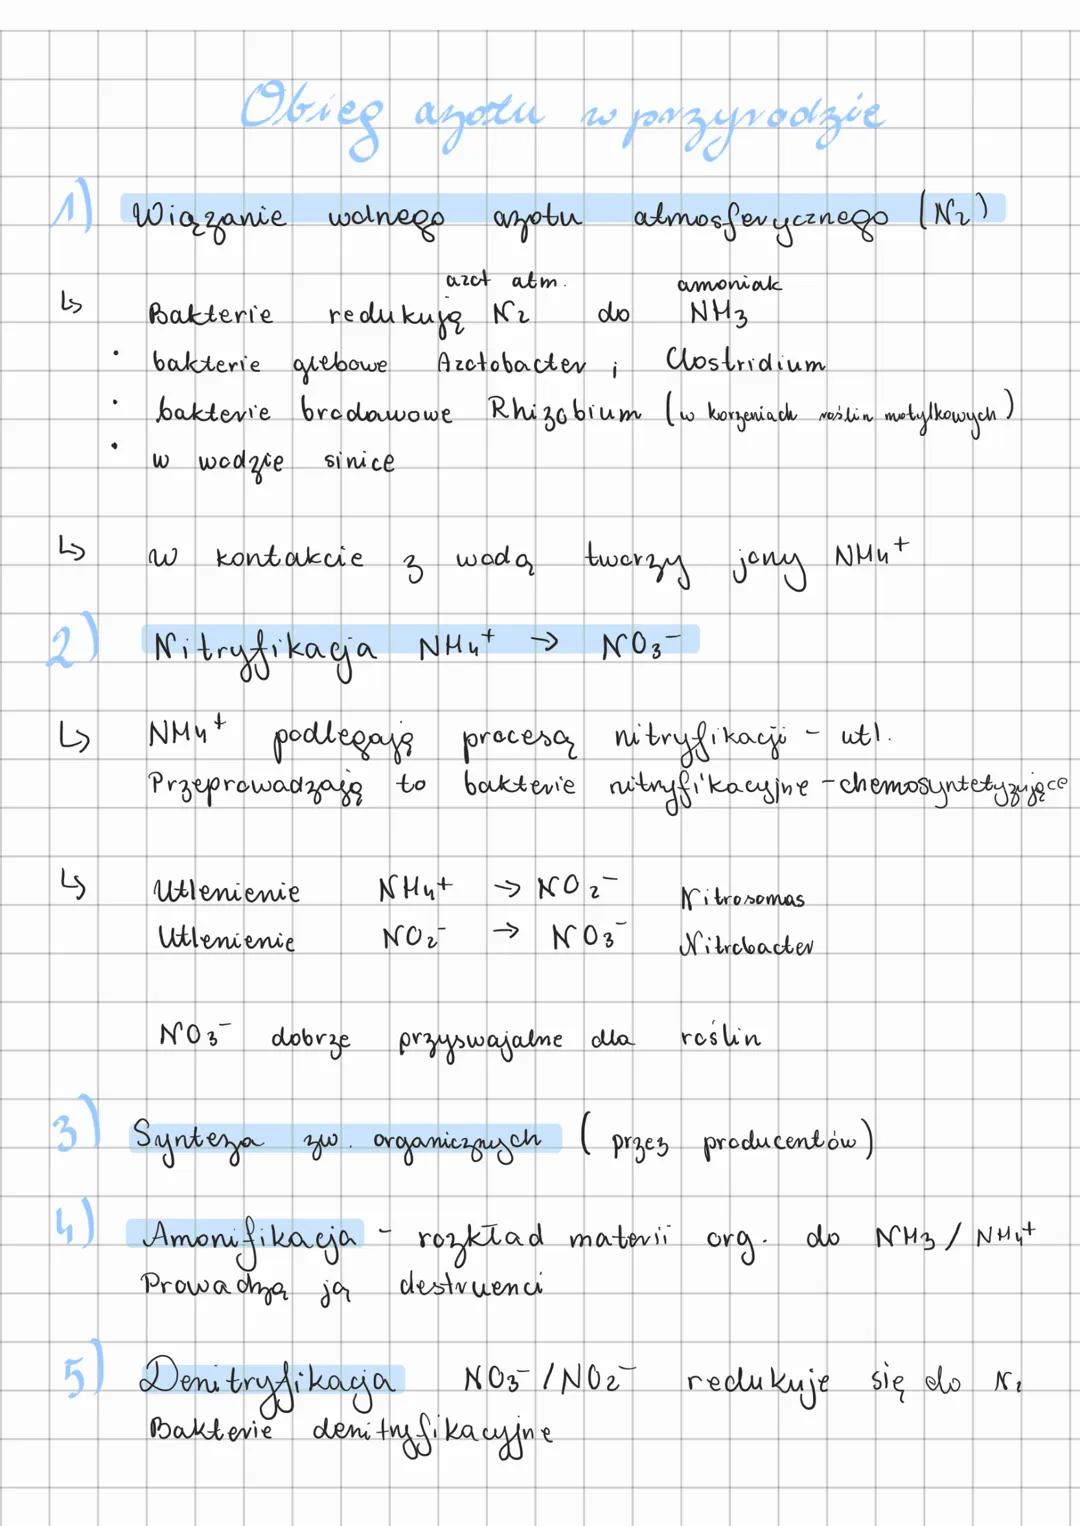 Obieg azotu w przyrodzie
1) Wiązanie wolnego azotu atmosferycznego (N₂)
azot atm. amoniak
↳ Bakterie redukują N₂ do NH₃
• bakterie glebowe Azotobacter i Clostridium
• bakterie brodawowe Rhizobium (w korzeniach roślin motylkowych)
• w wodzie sinice
↳ w kontakcie z wodą tworzy jony NH₄⁺
2) Nitryfikacja NH₄⁺ → NO₃⁻
↳ NH₄⁺ podlegają procesą nitryfikacji - utl.
Przeprowadzają to bakterie nitryfikacyjne - chemosyntetyzujące
↳ Utlenienie NH₄⁺ → NO₂⁻ Nitrosomas
Utlenienie NO₂⁻ → NO₃⁻ Nitrobacter
NO₃⁻ dobrze przyswajalne dla roślin
3) Synteza zw. organicznych (przez producentów)
4) Amonifikacja - rozkład materii org. do NH₃ / NH₄⁺
Prowadzą ją destruenci
5) Denitryfikacja NO₃⁻ / NO₂⁻ redukuje się do N₂
Bakterie denitryfikacyjne